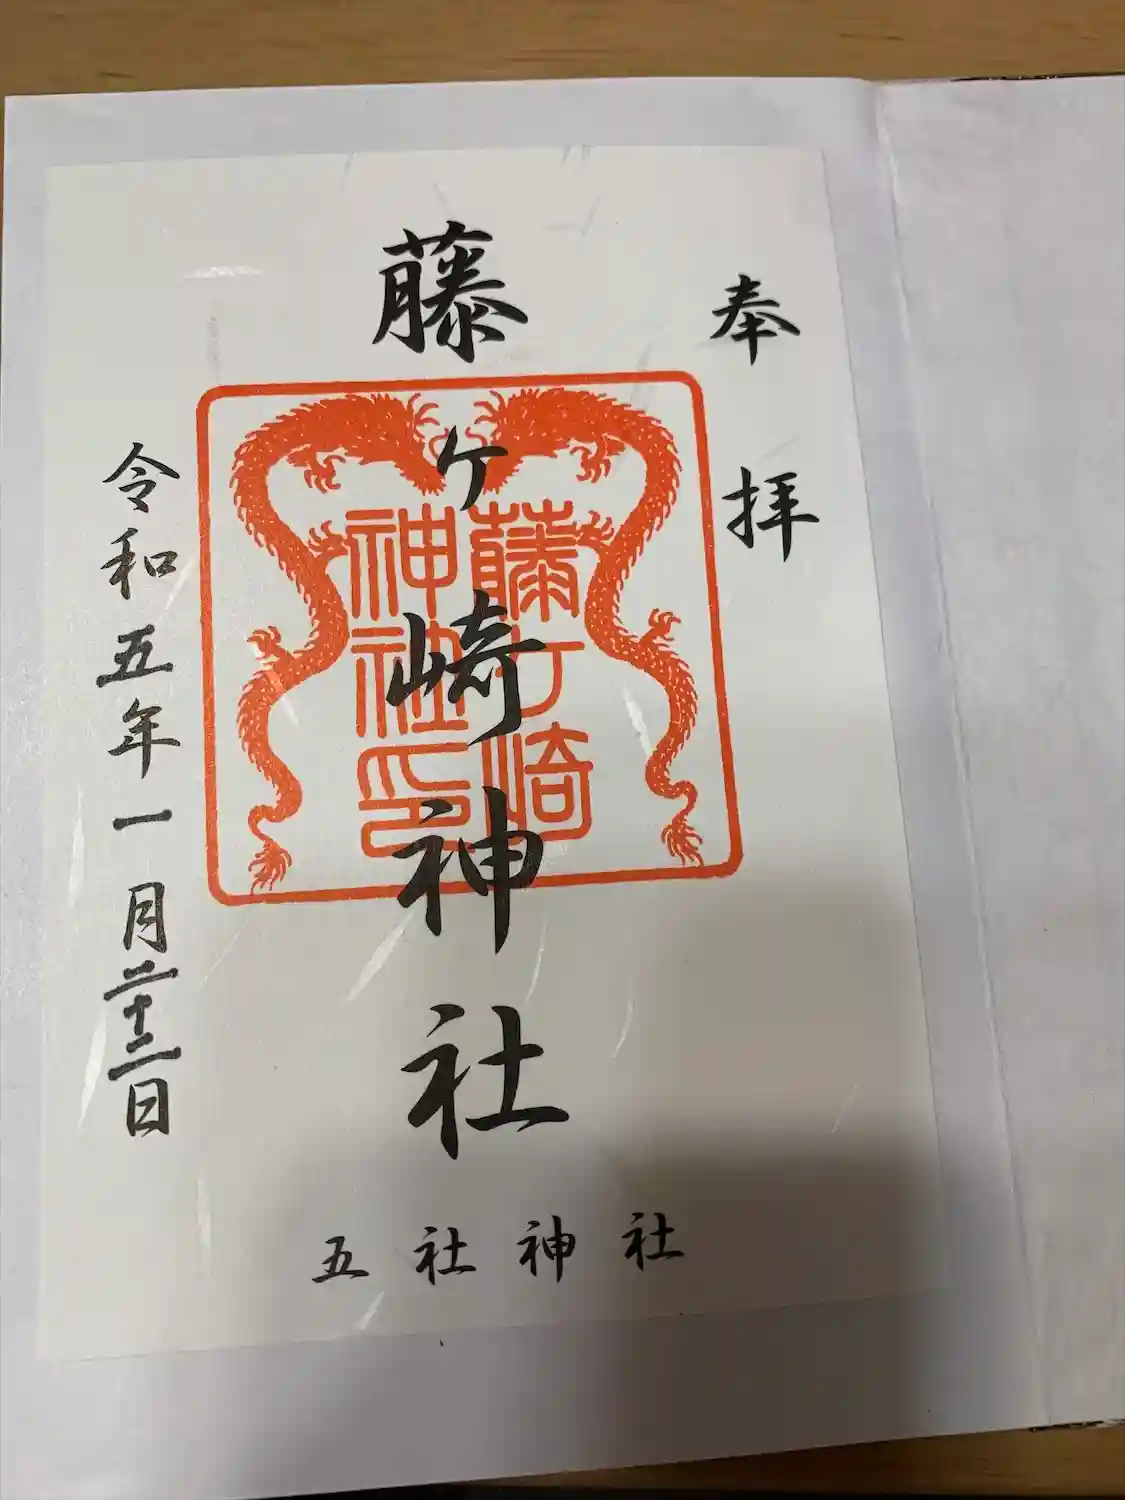 奉拝
藤ヶ崎神社
藤ヶ崎
神社印
令和五年一月二十二日
五社神社